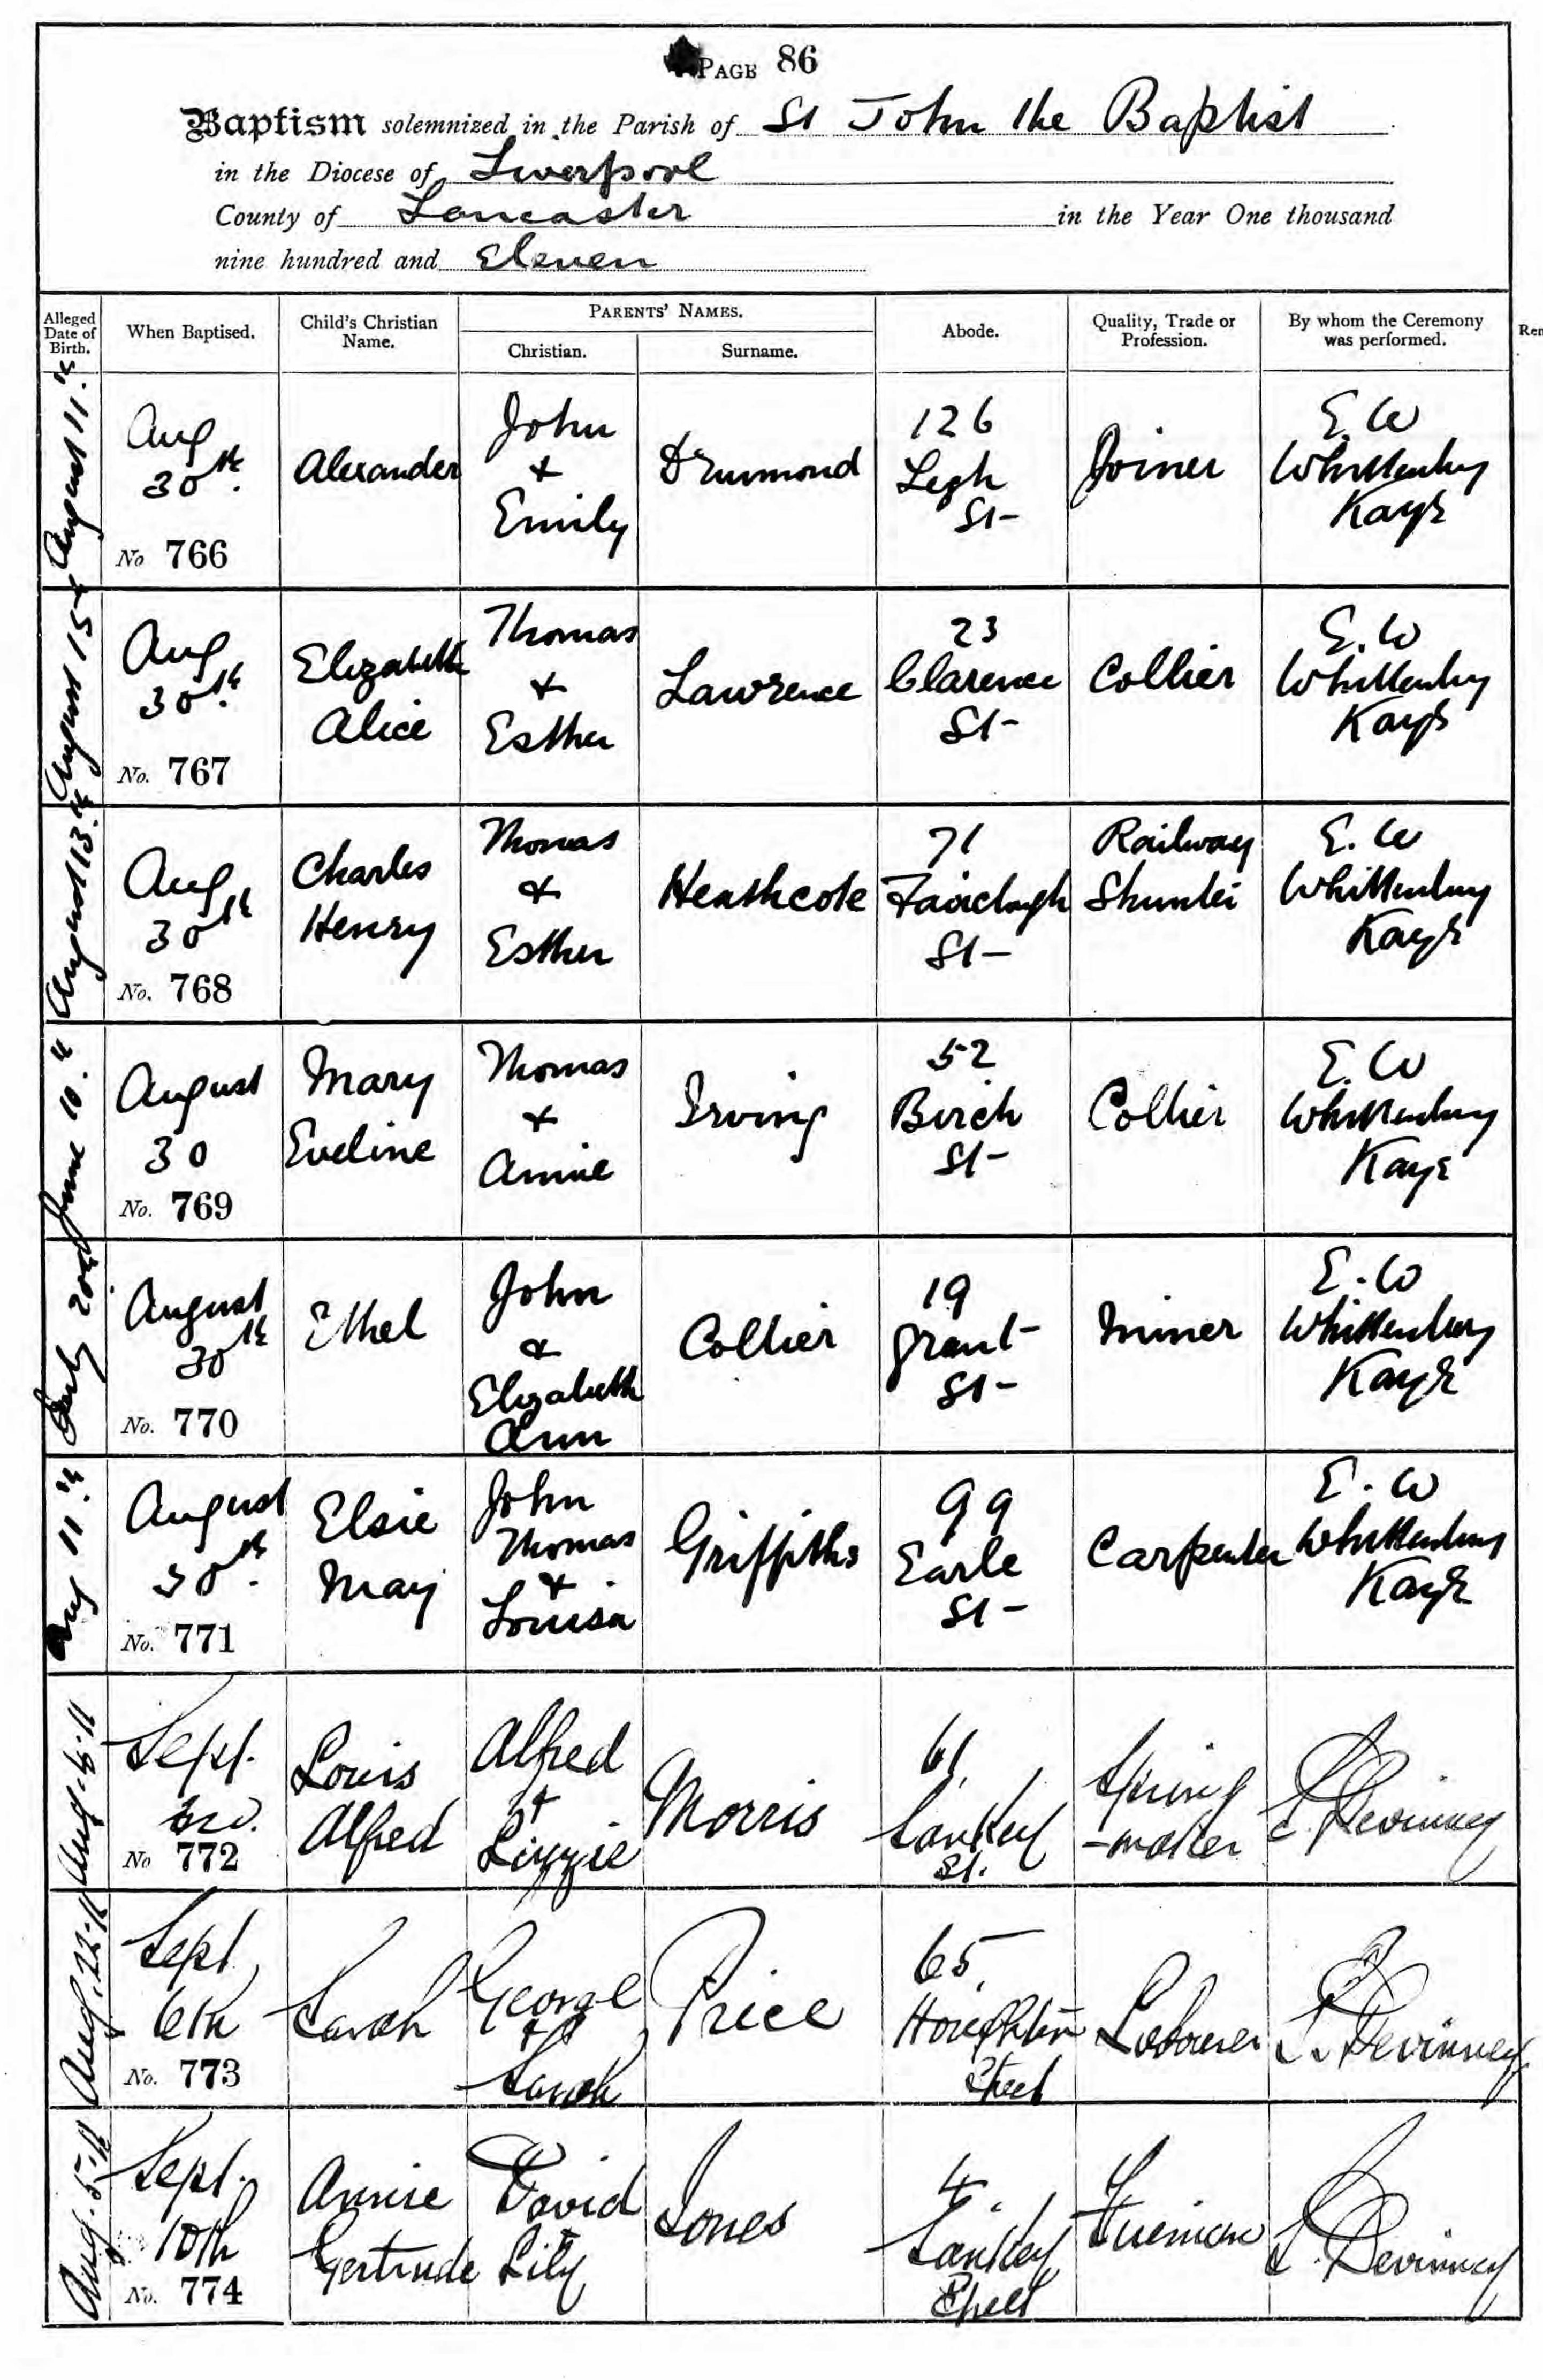 PAGE 86
Baptism solemnized in the Parish of St John the Baptist
in the Diocese of Liverpool
County of Lancaster in the Year One thousand
nine hundred and Eleven
Alleged Date of Birth.
When Baptised.
Child's Christian Name.
PARENTS' NAMES.
Christian.
Surname.
Abode.
Quality, Trade or Profession.
By whom the Ceremony was performed.
August 11.th
Aug
30th.
No 766
Alexander
John
+
Emily
Drummond
126
Legh
St-
Joiner
E. W
Whittenbury
Kaye
August 15
Aug
30th.
No. 767
Elizabeth
Alice
Thomas
+
Esther
Lawrence
23
Clarence
St-
Collier
E. W
Whittenbury
Kaye
August 13.th
Aug
30th
No. 768
Charles
Henry
Thomas
&
Esther
Heathcote
71
Fairclough
St-
Railway
Shunter
E. W
Whittenbury
Kaye
June 10.th
August
30
No. 769
Mary
Eveline
Thomas
+
Annie
Irving
52
Birch
St-
Collier
E. W
Whittenbury
Kaye
July 20th
August
30th
No. 770
Ethel
John
&
Elizabeth
Ann
Collier
19
Grant
St-
Miner
E. W
Whittenbury
Kaye
11.th
August
30th.
No. 771
Elsie
May
John
Thomas
+
Louisa
Griffiths
99
Earle
St-
Carpenter
E. W
Whittenbury
Kaye
Sept.
No 772
Louis
Alfred
Alfred
+
Lizzie
Morris
61,
Sankey
St.
Spring
-maker
Devinney
Aug. 22-11
Sept
6th
No. 773
Sarah
George
+
Sarah
Price
65,
Houghton
Street
Labourer
Devinney
Aug. 5-11
Sept.
10th
No. 774
Annie
Gertrude
David
Lily
Jones
4.
Sankey
Street
Fireman
Devinney